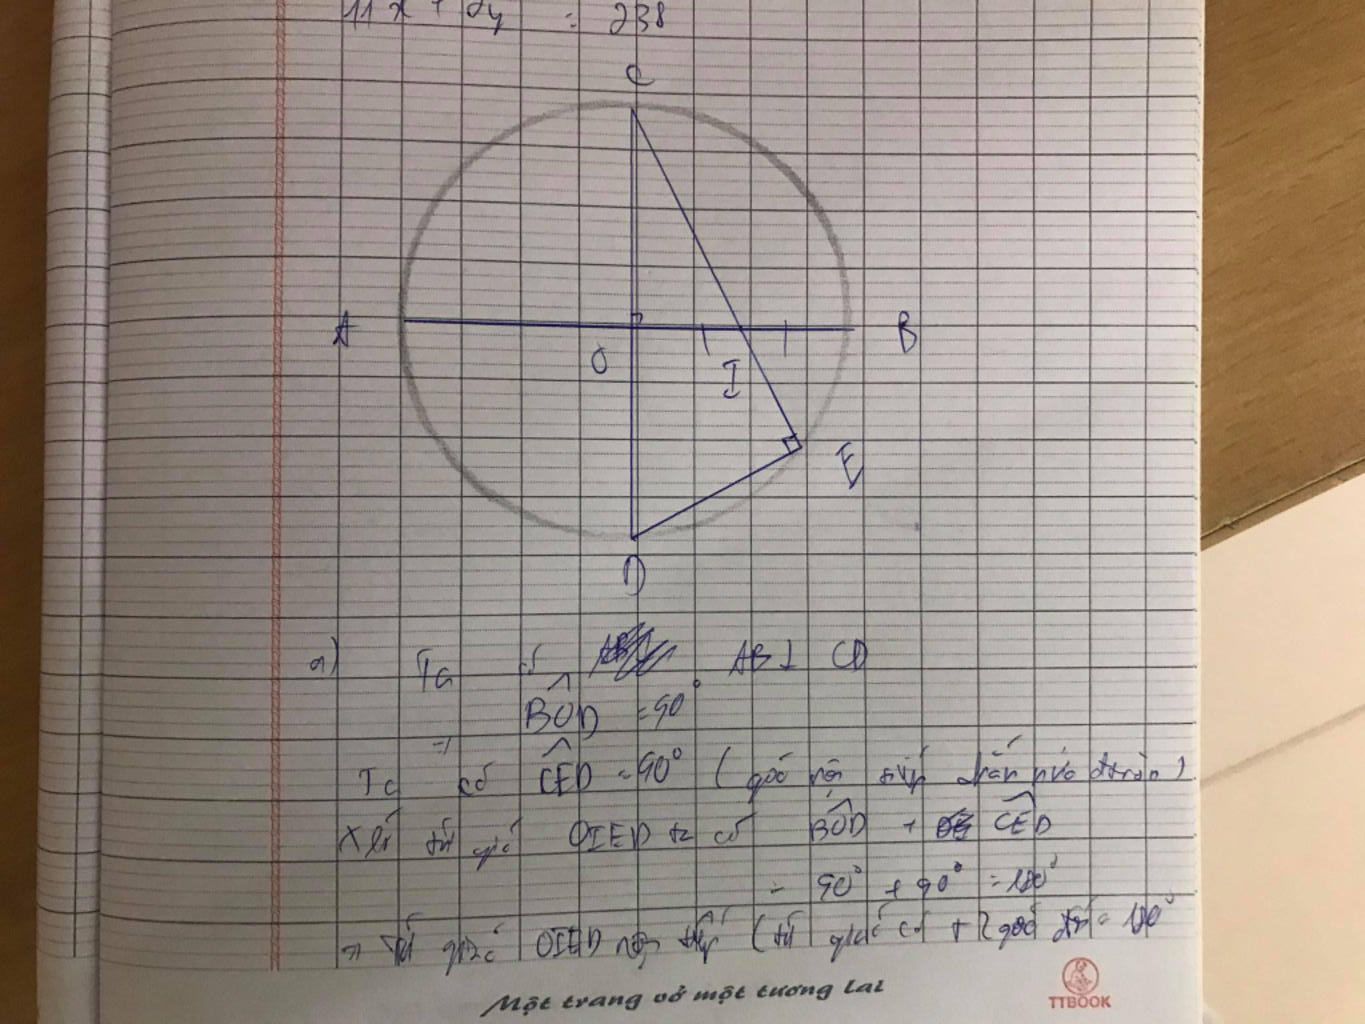 11x + 2y = 238
C
A
B
O
I
E
D
a) Ta có AB ⊥ CD
BOD = 90°
Ta có CED = 90° (góc nội tiếp chắn nửa đtròn)
Xét tứ giác OIED ta có BOD + CED
= 90° + 90° = 180°
=> Tứ giác OIED nội tiếp (tứ giác có t 2 góc đối = 180°
Một trang vở một tương lai
TTBOOK